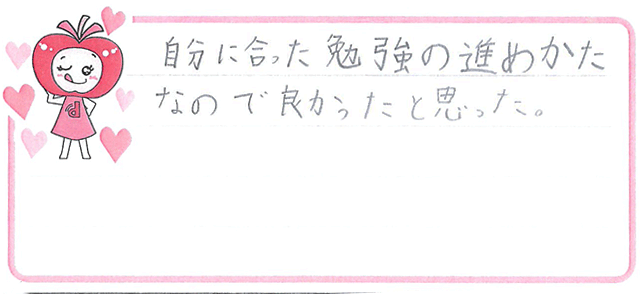 自分に合った勉強の進めかた
なので良かったと思った。